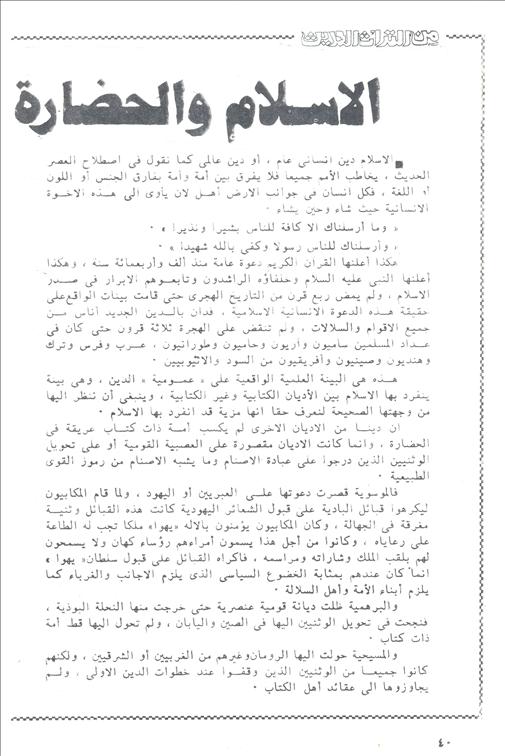 من التراث الحديث
الاسلام والحضارة
الاسلام دين انسانى عام ، أو دين عالمى كما نقول فى اصطلاح العصر
الحديث ، يخاطب الأمم جميعا فلا يفرق بين أمة وأمة بفارق الجنس أو اللون
أو اللغة ، فكل انسان فى جوانب الارض أهل لان يأوى الى هذه الاخوة
الانسانية حيث شاء وحين يشاء ٠
« وما أرسلناك الا كافة للناس بشيرا ونذيرا » ٠
« وأرسلناك للناس رسولا وكفى بالله شهيدا » ٠
هكذا أعلنها القرآن الكريم دعوة عامة منذ ألف وأربعمائة سنة ، وهكذا
أعلنها النبى عليه السلام وخلفاؤه الراشدون وتابعوهم الابرار فى صدر
الاسلام ، ولم يمض ربع قرن من التاريخ الهجرى حتى قامت بينات الواقع على
حقيقة هذه الدعوة الانسانية الاسلامية ، فدان بالدين الجديد أناس من
جميع الاقوام والسلالات ، ولم تنقض على الهجرة ثلاثة قرون حتى كان فى
عداد المسلمين ساميون وآريون وحاميون وطورانيون ، عرب وفرس وترك
وهنديون وصينيون وأفريقيون من السود والاثيوبيين ٠
هذه هى البينة العلمية الواقعية على « عمومية » الدين ، وهى بينة
ينفرد بها الاسلام بين الأديان الكتابية وغير الكتابية ، وينبغى أن ننظر اليها
من وجهتها الصحيحة لنعرف حقا انها مزية قد انفرد بها الاسلام ٠
ان دينا من الاديان الاخرى لم يكسب أمة ذات كتاب عريقة فى
الحضارة ، وانما كانت الاديان مقصورة على العصبية القومية أو على تحويل
الوثنيين الذين درجوا على عبادة الاصنام وما يشبه الاصنام من رموز القوى
الطبيعية ٠
فالموسوية قصرت دعوتها على العبريين أو اليهود ، ولما قام المكابيون
ليكرهوا قبائل البادية على قبول الشعائر اليهودية كانت هذه القبائل وثنية
مغرقة فى الجهالة ، وكان المكابيون يؤمنون بالاله «يهوا» ملكا تجب له الطاعة
على رعاياه ، وكانوا من أجل هذا يسمون أمراءهم رؤساء كهان ولا يسمحون
لهم بلقب الملك وشاراته ومراسمه ، فاكراه القبائل على قبول سلطان« يهوا »
انما كان عندهم بمثابة الخضوع السياسى الذى يلزم الاجانب والغرباء كما
يلزم أبناء الأمة وأهل السلالة ٠
والبرهمية ظلت ديانة قومية عنصرية حتى خرجت منها النحلة البوذية ،
فنجحت فى تحويل الوثنيين اليها فى الصين واليابان ، ولم تحول اليها قط أمة
ذات كتاب ٠
والمسيحية حولت اليها الرومان وغيرهم من الغربيين أو الشرقيين ، ولكنهم
كانوا جميعا من الوثنيين الذين وقفوا عند خطوات الدين الاولى ، ولم
يجاوزوها الى عقائد أهل الكتاب ٠
٤٠